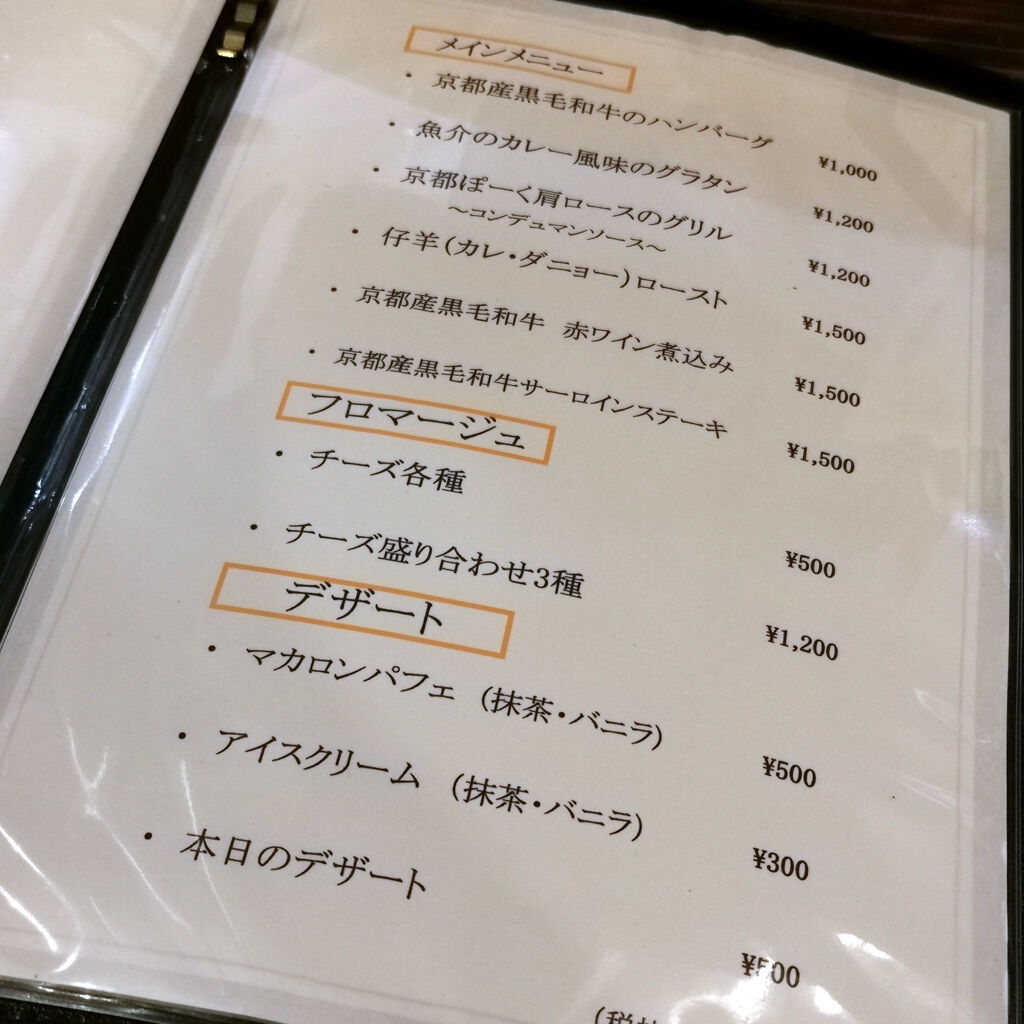 メインメニュー
・京都産黒毛和牛のハンバーグ ¥1,000
・魚介のカレー風味のグラタン ¥1,200
・京都ぽーく肩ロースのグリル ¥1,200
～コンデュマンソース～
・仔羊(カレ・ダニョー)ロースト ¥1,500
・京都産黒毛和牛 赤ワイン煮込み ¥1,500
・京都産黒毛和牛サーロインステーキ ¥1,500
フロマージュ
・チーズ各種 ¥500
・チーズ盛り合わせ3種 ¥1,200
デザート
・マカロンパフェ (抹茶・バニラ) ¥500
・アイスクリーム (抹茶・バニラ) ¥300
・本日のデザート ¥500